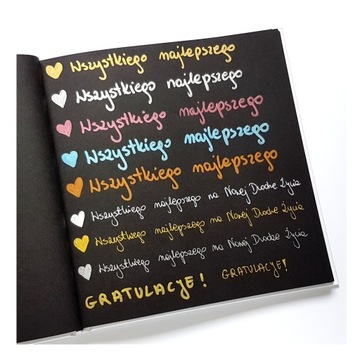 Wszystkiego najlepszego
Wszystkiego najlepszego
Wszystkiego najlepszego
Wszystkiego najlepszego
Wszystkiego najlepszego
Wszystkiego najlepszego na Nowej Drodze Życia
Wszystkiego najlepszego na Nowej Drodze Życia
Wszystkiego najlepszego na Nowej Drodze Życia
GRATULACJE! GRATULACJE!